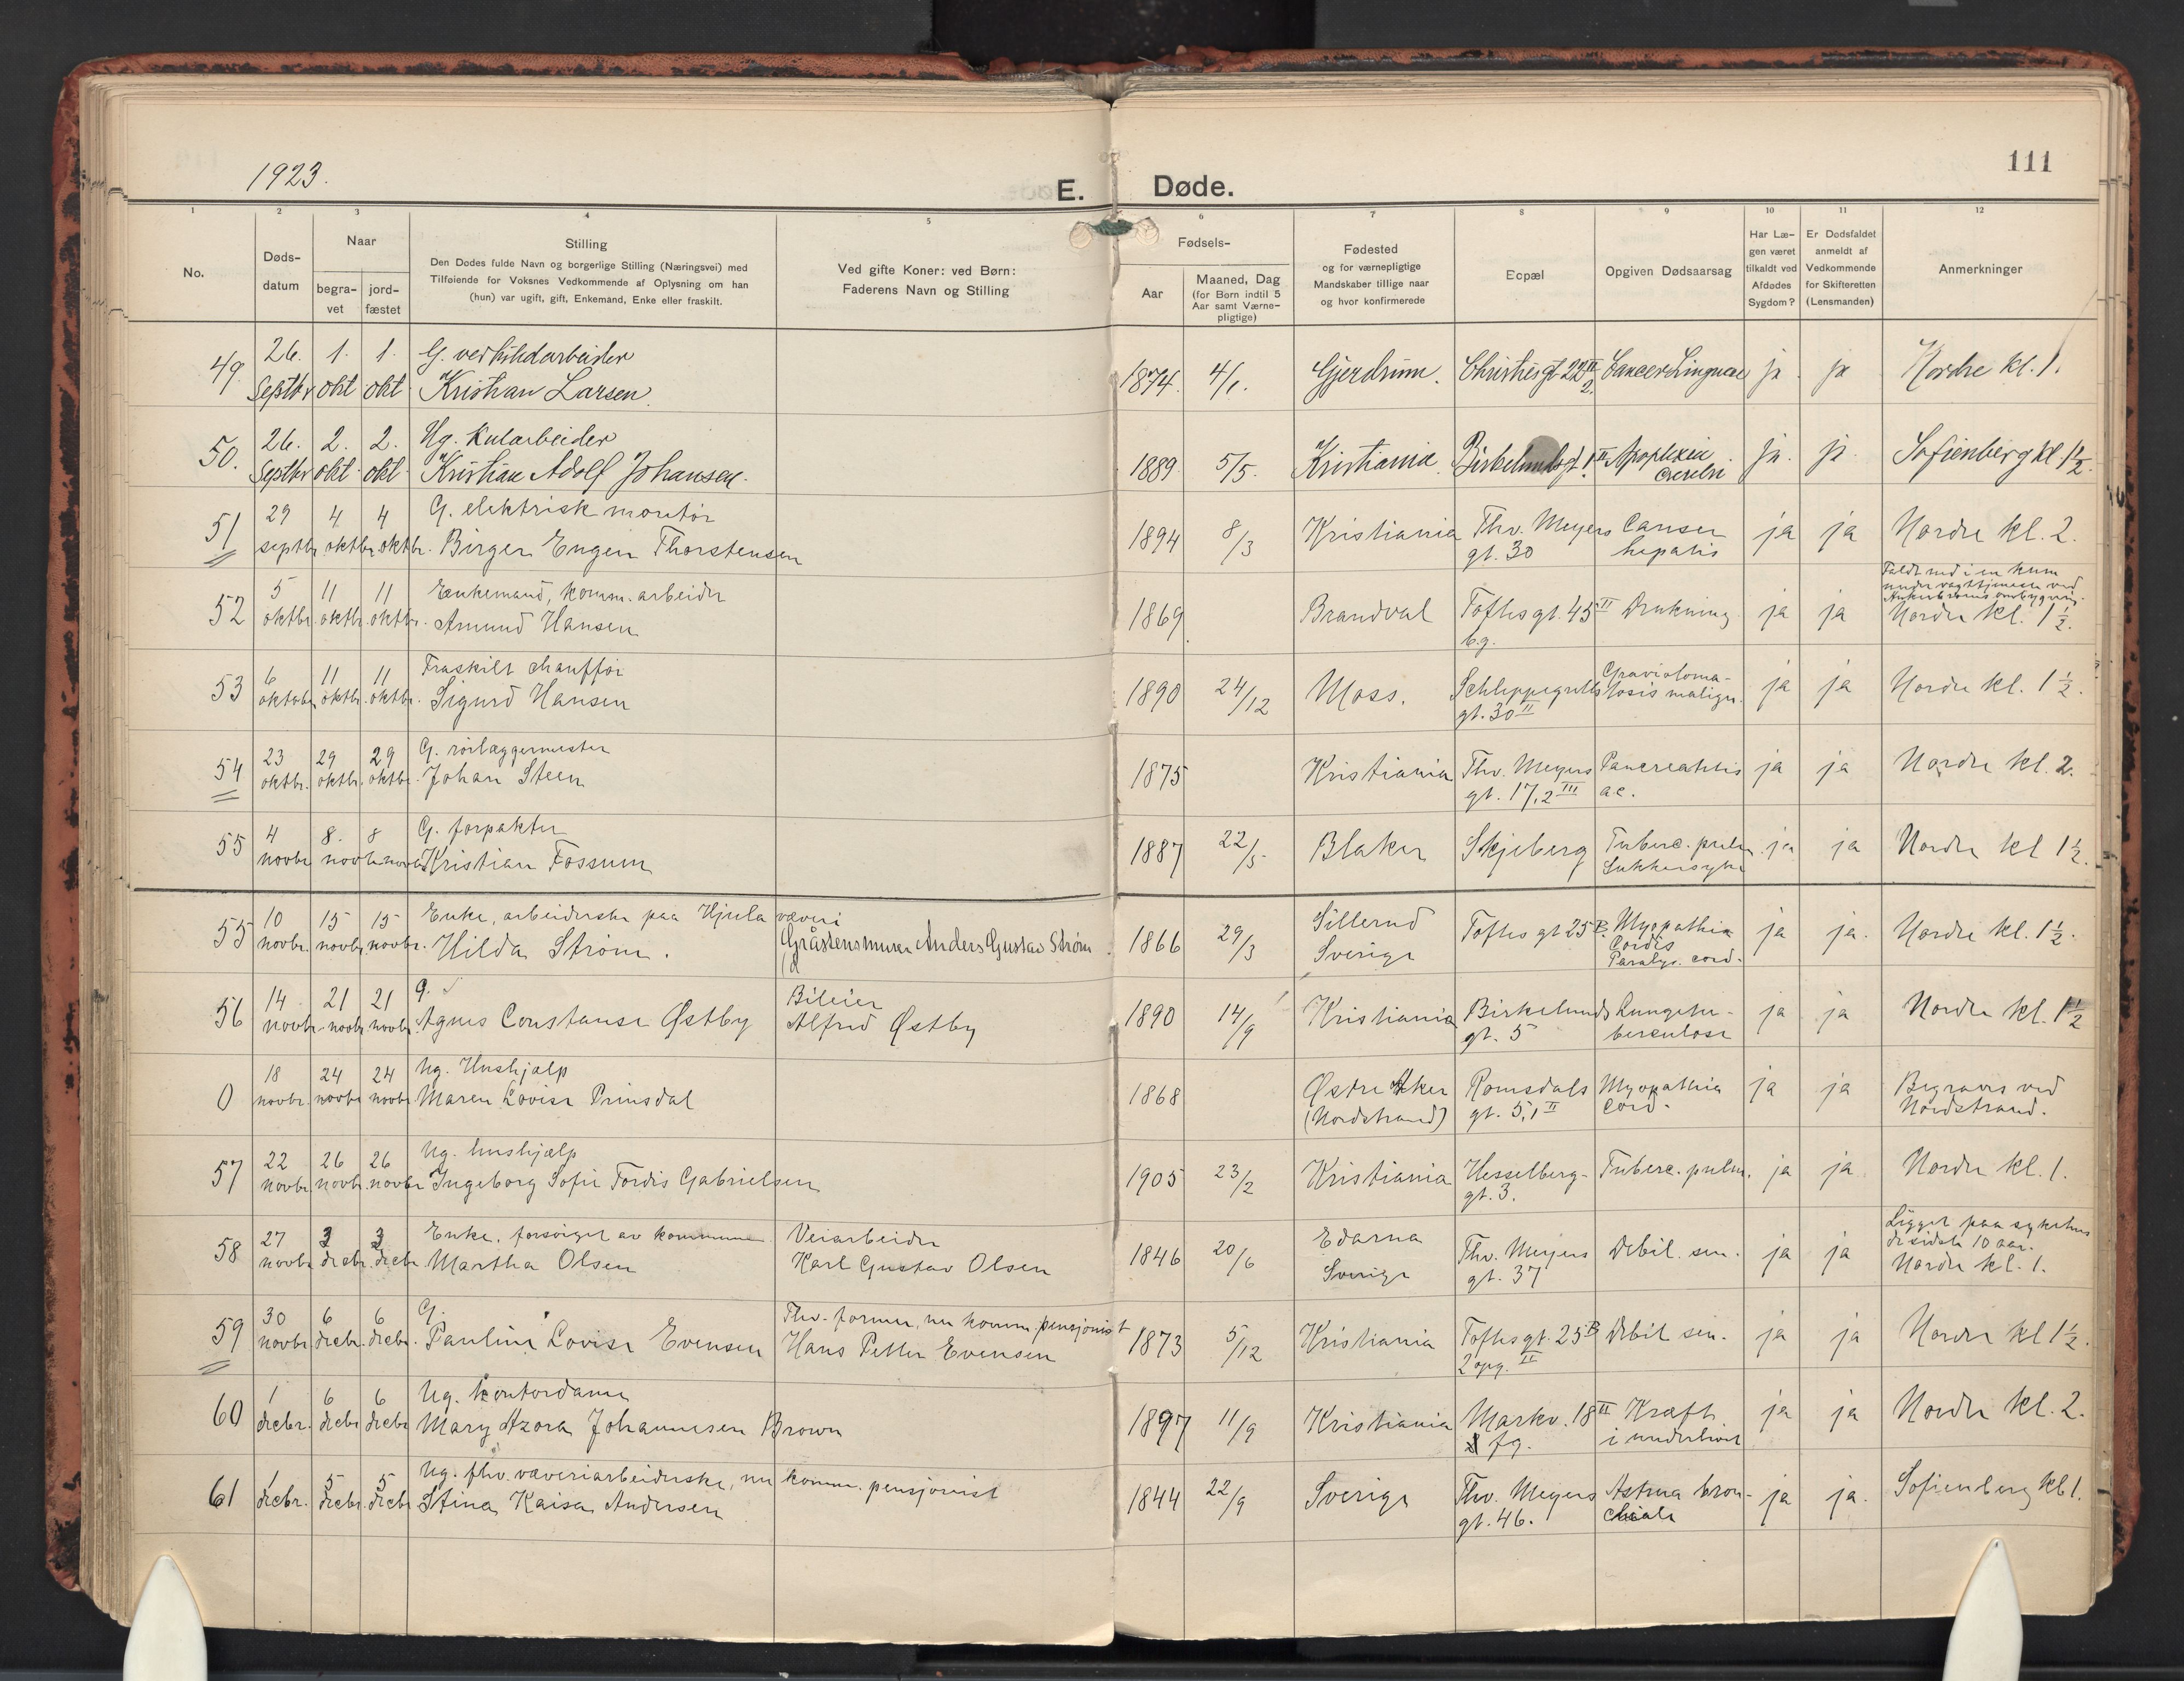 1923.
E. Døde.
111
1 2 3 4 5 6 7 8 9 10 11 12
No.
Døds-
datum
Naar
begra-
vet
jord-
fæstet
Stilling
Den Dødes fulde Navn og borgerlige Stilling (Næringsvei) med
Tilføiende for Voksnes Vedkommende af Oplysning om han
(hun) var ugift, gift, Enkemand, Enke eller fraskilt.
Ved gifte Koner: ved Børn:
Faderens Navn og Stilling
Fødsels-
Aar
Maaned, Dag
(for Børn indtil 5
Aar samt Værne-
pligtige)
Fødested
og for værnepligtige
Mandskaber tillige naar
og hvor konfirmerede
Ecpæl
Opgiven Dødsaarsag
Har Læ-
gen været
tilkaldt ved
Afdødes
Sygdom?
Er Dødsfaldet
anmeldt af
Vedkommende
for Skifteretten
(Lensmanden)
Anmerkninger
49. 26. 1. 1. G.
Septbr okt okt Kristian Larsen. 1874. 4/1. Gjerdrum. Christies gt 22 II Cancer Linguae ja ja Nordre kl. 1.
2.
50. 26. 2. 2. Ug. Kularbeider
Septbr okt okt Kristian Adolf Johansen. 1889. 5/5. Kristiania Birkelunds gt. 1 II Apoplexia ja. ja. Sofienberg kl 1½.
cerebri
51 29 4 4 G. elektrisk montør
septbr. oktbr. oktbr. Birger Engen Thorstensen 1894 8/3 Kristiania Thv. Meyers Cancer ja ja Nordre kl. 2.
gt. 30 hepatis
52 5 11 11 Enkemand, komm. arbeider Faldt ned i en kum
under vagttjeneste ved
oktbr. oktbr. oktbr. Amund Hansen 1869 Brandval Toftes gt. 45 II Drukning ja ja Nordre kl. 1½.
b.g.
53 6 11 11 Fraskilt chauffør
oktober oktbr. oktbr. Sigurd Hansen 1890 24/12 Moss. Schleppegrells ja ja Nordre kl. 1½.
gt. 30 II malign.
54 23 29 29 G. rørlæggermester
oktbr. oktbr. oktbr. Johan Steen 1875 Kristiania Thv. Meyers Pancreatitis ja ja Nordre kl. 2.
gt. 17,2 III ac.
55 4 8. 8 G. forpakter
novbr novbr novbr Kristian Fossum 1887 22/5 Blaker Skjeberg Tuberc. pulm. ja ja Nordre kl 1½.
Sukkersyke
55 10 15 15 Enke, arbeiderske paa Hjula væveri
novbr. novbr novbr. Hilda Strøm. Gråstensmurer Anders Gustav Strøm. 1866 29/3 Sillerud Toftes gt 25 B. Myopathia ja ja. Nordre kl. 1½.
Sverige Cordis
Paralys. cord.
56 14 21 21 g. Bileier
novbr novbr novbr. Agnes Constanse Østby Alfred Østby 1890 14/9 Kristiania Birkelunds Lungetu- ja ja Nordre kl. 1½
gt. 5 berculose
0 18 24 24 Ug. Hushjælp
novbr. novbr novbr Maren Lovise Prinsdal 1868 Østre Aker Romsdals Myopathia ja ja Begraves ved
(Nordstrand) gt. 5,1 II cord. Nordstrand.
57 22 26 26 Ug. hushjælp
novbr. novbr. novbr Ingeborg Sofie Tordis Gabrielsen 1905 23/2 Kristiania Hesselberg- Tuberc. pulm. ja ja Nordre kl. 1.
gt. 3.
58 27 3 3 Enke. forsørget av kommunen Veiarbeider
novbr decbr. decbr Martha Olsen Karl Gustav Olsen 1846 20/6 Edarna Thv. Meyers Debil. sen. ja ja
Sverige gt. 37
Ligget paa sykehus
de sidste 10 aar.
Nordre kl. 1.
59 30 6 6 G. Fhv. former, nu komm. pensjonist
novbr. decbr. decbr. Pauline Lovise Evensen Hans Petter Evensen 1873 5/12 Kristiania Toftes gt. 25 B Debil sen. ja ja Nordre kl 1½.
2 opg. II
60 1 6 6 Ug. kontordame
decbr. decbr decbr Mary Azora Johannesen Brown 1897 11/9 Kristiania Markv. 18 II Kræft ja ja Nordre kl. 2.
fg. i underlivet
61 1 5 5 Ug. fhv. væveriarbeiderske, nu komm. pensjonist
decbr. decbr decbr Stina Kaisa Andersen 1844 22/9 Sverige Thv. Meyers Astma bron- ja ja. Sofienberg kl 1.
gt. 46. chiale